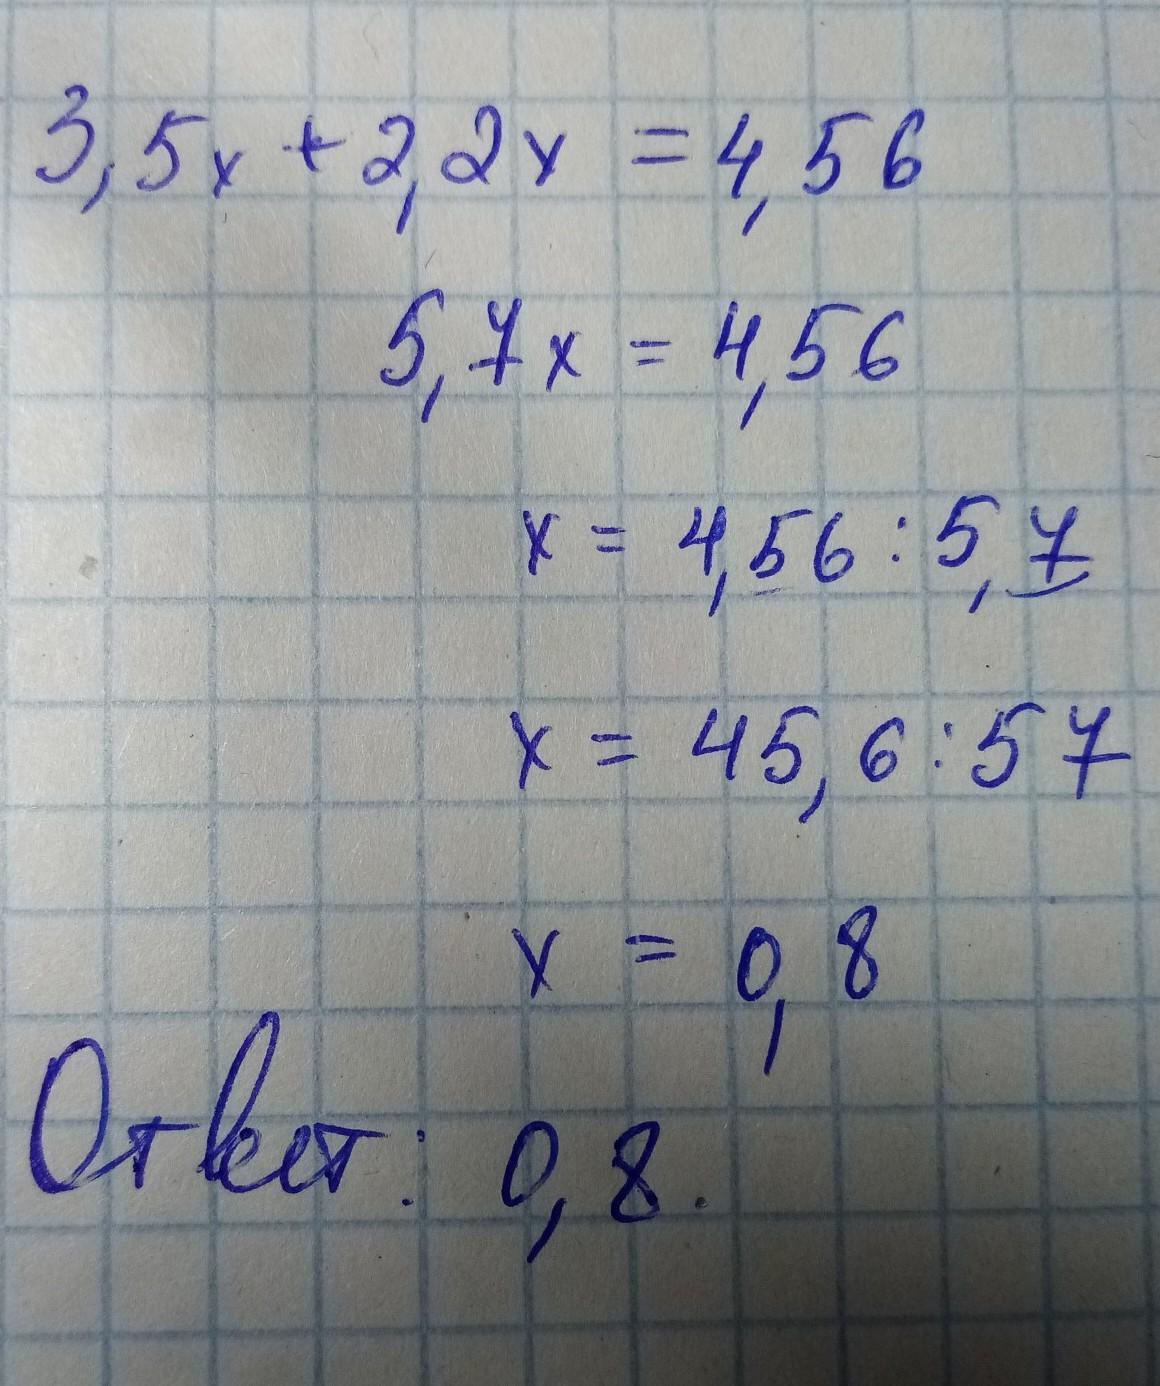 3,5x + 2,2x = 4,56
5,7x = 4,56
x = 4,56 : 5,7
x = 45,6 : 57
x = 0,8
Ответ: 0,8.